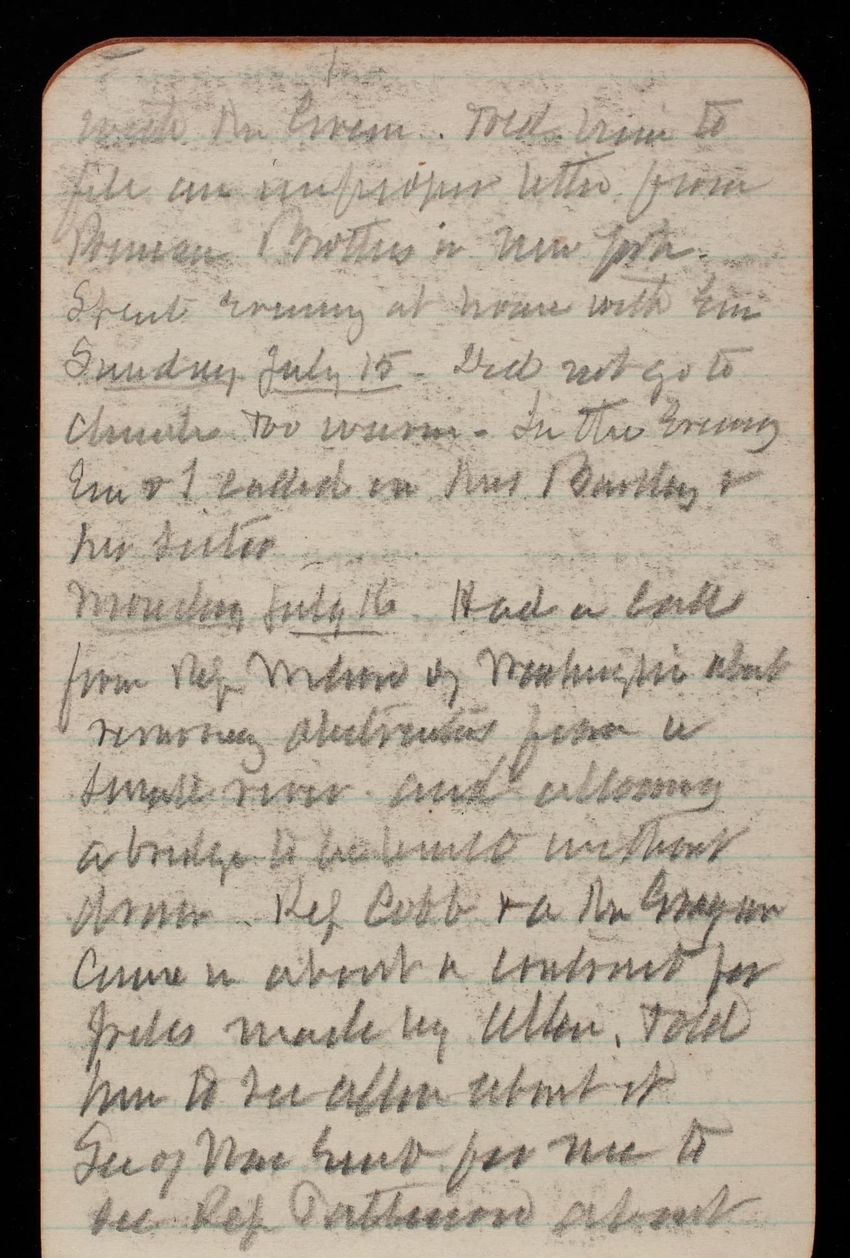 with Mr Green. Told him to
file an improper letter from
Brothers in New York.
Spent evening at home with Em
Sunday July 15 - Did not go to
church too warm - In the evening
Em & I called on Mrs Bartley &
her sister
Monday July 16. Had a call
from Rep Wilson of Washington about
removing obstructions from a
small river and allowing
a bridge to be built without
draw. Rep Cobb & a Mr
came in about a contract for
piles made by Allen, Told
him to see Allen about it
Sec of War sent for me to
see Rep Patterson about